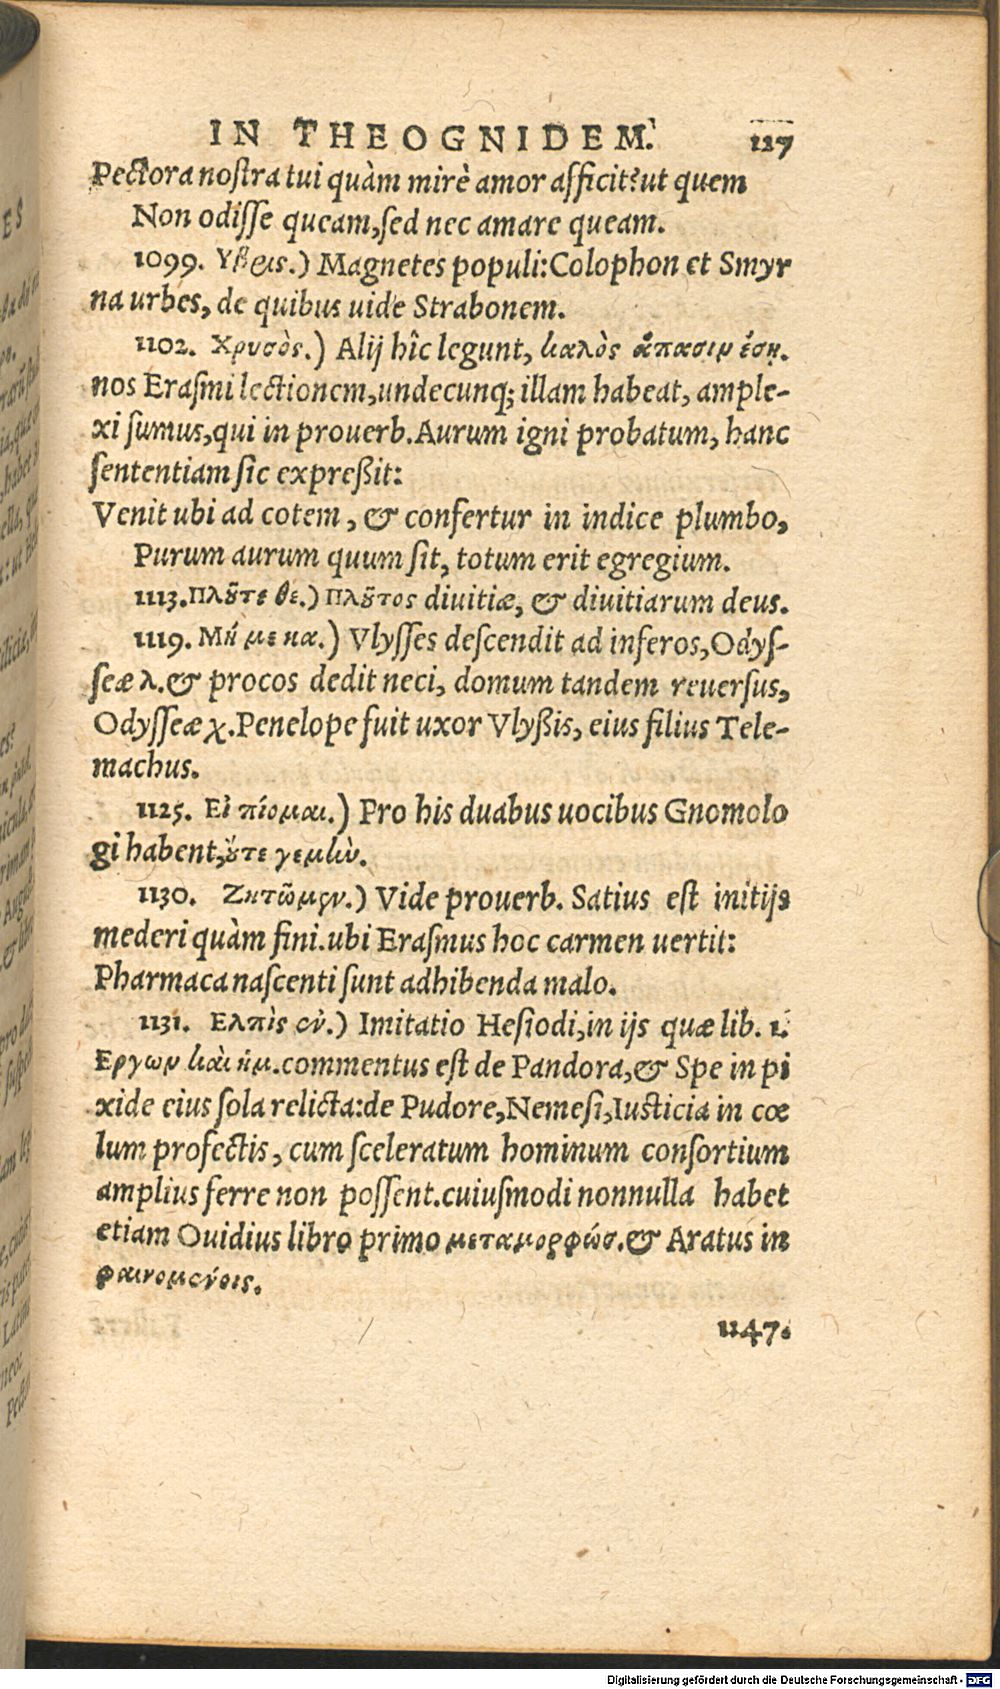 IN THEOGNIDEM. 127
Pectora nostra tui quàm mirè amor afficit? ut quem
Non odisse queam, sed nec amare queam.
1099. Υβρις.) Magnetes populi: Colophon et Smyr
na urbes, de quibus uide Strabonem.
1102. Χρυσὸς.) Alij hîc legunt, καλὸς ἅπασιν ἔσῃ.
nos Erasmi lectionem, undecunq; illam habeat, ample-
xi sumus, qui in prouerb. Aurum igni probatum, hanc
sententiam sic expreßit:
Venit ubi ad cotem, & confertur in indice plumbo,
Purum aurum quum sit, totum erit egregium.
1113. Πλοῦτε θε.) Πλοῦτος diuitiæ, & diuitiarum deus.
1119. Μή με κα.) Vlysses descendit ad inferos, Odys-
seæ λ. & procos dedit neci, domum tandem reuersus,
Odysseæ χ. Penelope fuit uxor Vlyßis, eius filius Tele-
machus.
1125. Εἰ πίομαι.) Pro his duabus uocibus Gnomolo
gi habent, οὔτε γεμὼν.
1130. Ζητῶμεν.) Vide prouerb. Satius est initijs
mederi quàm fini. ubi Erasmus hoc carmen uertit:
Pharmaca nascenti sunt adhibenda malo.
1131. Ελπὶς ἐν.) Imitatio Hesiodi, in ijs quæ lib. 1.
Εργων καὶ ἡμ. commentus est de Pandora, & Spe in pi
xide eius sola relicta: de Pudore, Nemesi, Iusticia in cœ
lum profectis, cum sceleratum hominum consortium
amplius ferre non possent. cuiusmodi nonnulla habet
etiam Ouidius libro primo μεταμορφώσ. & Aratus in
φαινομένοις.
1147.
Digitalisierung gefördert durch die Deutsche Forschungsgemeinschaft - DFG